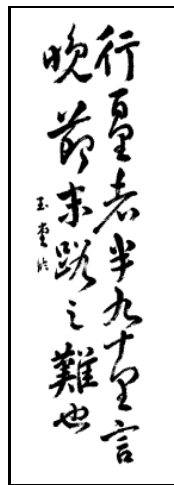 行百里者半九十里言
晚節末路之難也
玉堂臨